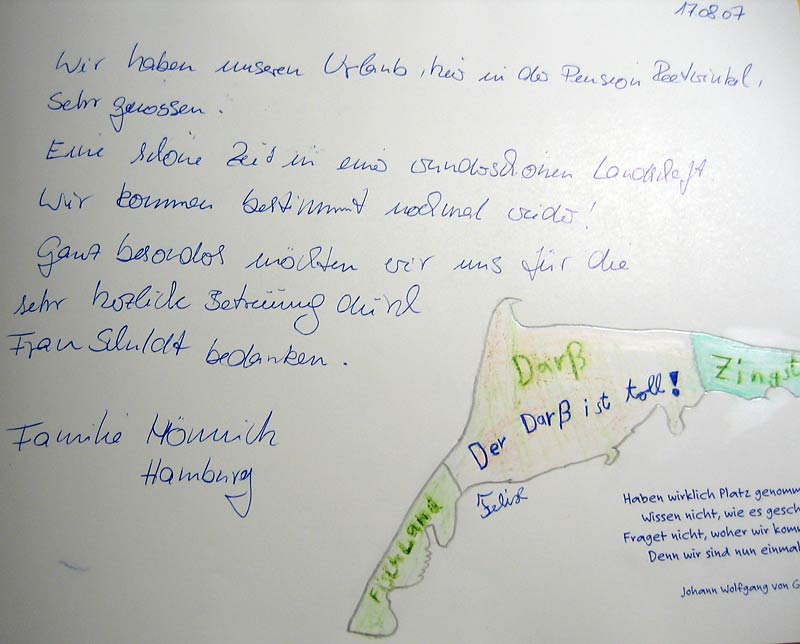 17.08.07
Wir haben unseren Urlaub, hier in der Pension Reetwinkel,
sehr genossen.
Eine schöne Zeit in einer wunderschönen Landschaft
Wir kommen bestimmt nochmal wieder!
Ganz besonders möchten wir uns für die
sehr herzliche Betreuung durch
Frau Schuldt bedanken.
Familie Mönnich
Hamburg
Darß
Zingst
Der Darß ist toll!
Felix
Fischland
Haben wirklich Platz genomm
Wissen nicht, wie es gesch
Fraget nicht, woher wir kom
Denn wir sind nun einmal
Johann Wolfgang von G